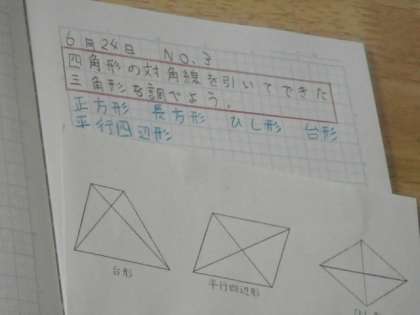 6月24日 NO.3
四角形の対角線を引いてできた
三角形を調べよう。
正方形 長方形 ひし形 台形
平行四辺形
台形
平行四辺形